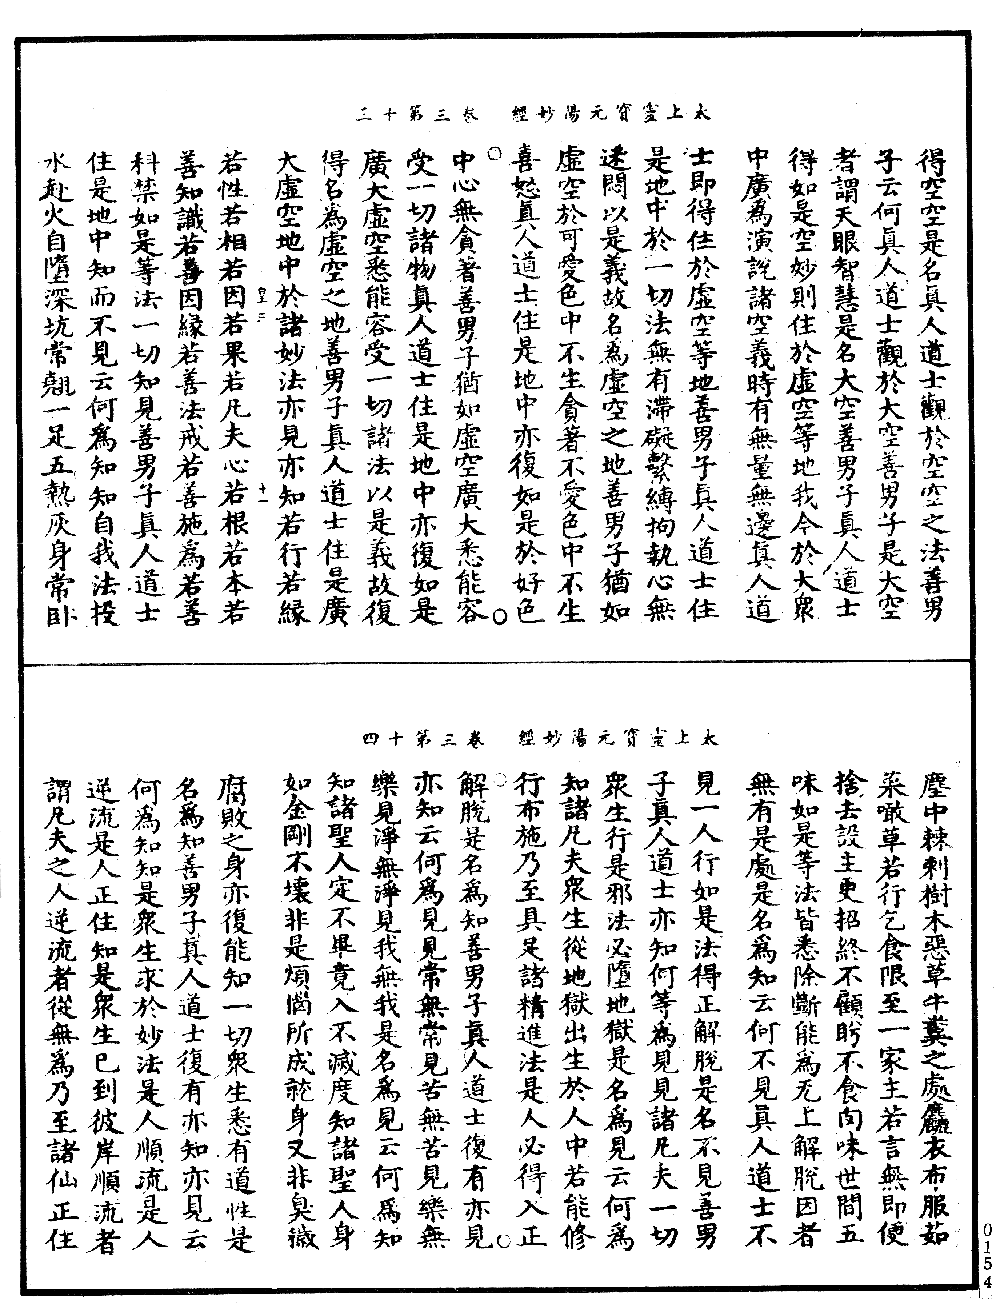 太上靈寶元陽妙經　卷三第十三
得空空是名真人道士觀於空空之法善男
子云何真人道士觀於大空善男子是大空
者謂天眼智慧是名大空善男子真人道士
得如是空妙則住於虛空等地我今於大衆
中廣為演說諸空義時有無量無邊真人道
士即得住於虛空等地善男子真人道士住
是地中於一切法無有滯礙繫縛拘執心無
迷悶以是義故名為虛空之地善男子猶如
虛空於可愛色中不生貪著不愛色中不生
喜怒真人道士住是地中亦復如是於好色
中心無貪著善男子猶如虛空廣大悉能容
受一切諸物真人道士住是地中亦復如是
廣大虛空悉能容受一切諸法以是義故復
得名為虛空之地善男子真人道士住是廣
大虛空地中於諸妙法亦見亦知若行若緣
若性若相若因若果若凡夫心若根若本若
善知識若善因緣若善法戒若善施為若善
科禁如是等法一切知見善男子真人道士
住是地中知而不見云何為知知自我法投
水赴火自墮深坑常翹一足五熱灰身常卧
太上靈寶元陽妙經　卷三第十四
塵中棘刺樹木惡草牛糞之處麤衣布服茹
菜噉草若行乞食限至一家主若言無即便
捨去設主更招終不顧眄不食肉味世間五
味如是等法皆悉除斷能為无上解脫因者
無有是處是名為知云何不見真人道士不
見一人行如是法得正解脫是名不見善男
子真人道士亦知何等為見見諸凡夫一切
衆生行是邪法必墮地獄是名為見云何為
知諸凡夫衆生從地獄出生於人中若能修
行布施乃至具足諸精進法是人必得入正
解脫是名為知善男子真人道士復有亦見
亦知云何為見見常無常見苦無苦見樂無
樂見淨無淨見我無我是名為見云何為知
知諸聖人定不畢竟入不滅度知諸聖人身
如金剛不壞非是煩惱所成就身又非臭穢
腐敗之身亦復能知一切衆生悉有道性是
名為知善男子真人道士復有亦知亦見云
何為知知是衆生求於妙法是人順流是人
逆流是人正住知是衆生已到彼岸順流者
謂凡夫之人逆流者從無為乃至諸仙正住
0154